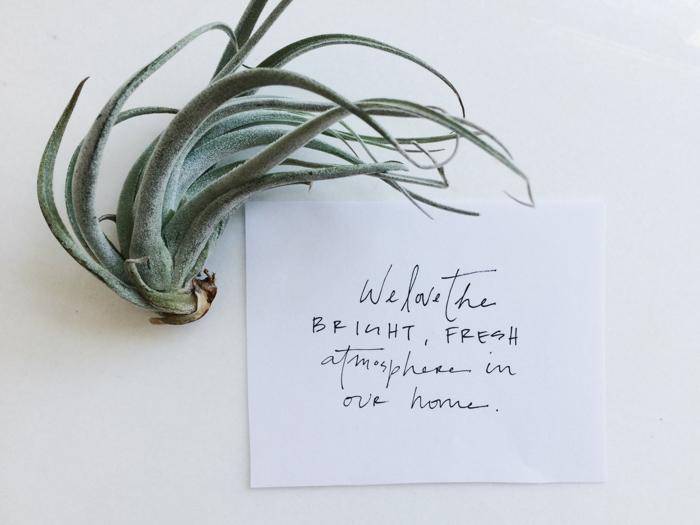 We love the
BRIGHT, FRESH
atmosphere in
our home.